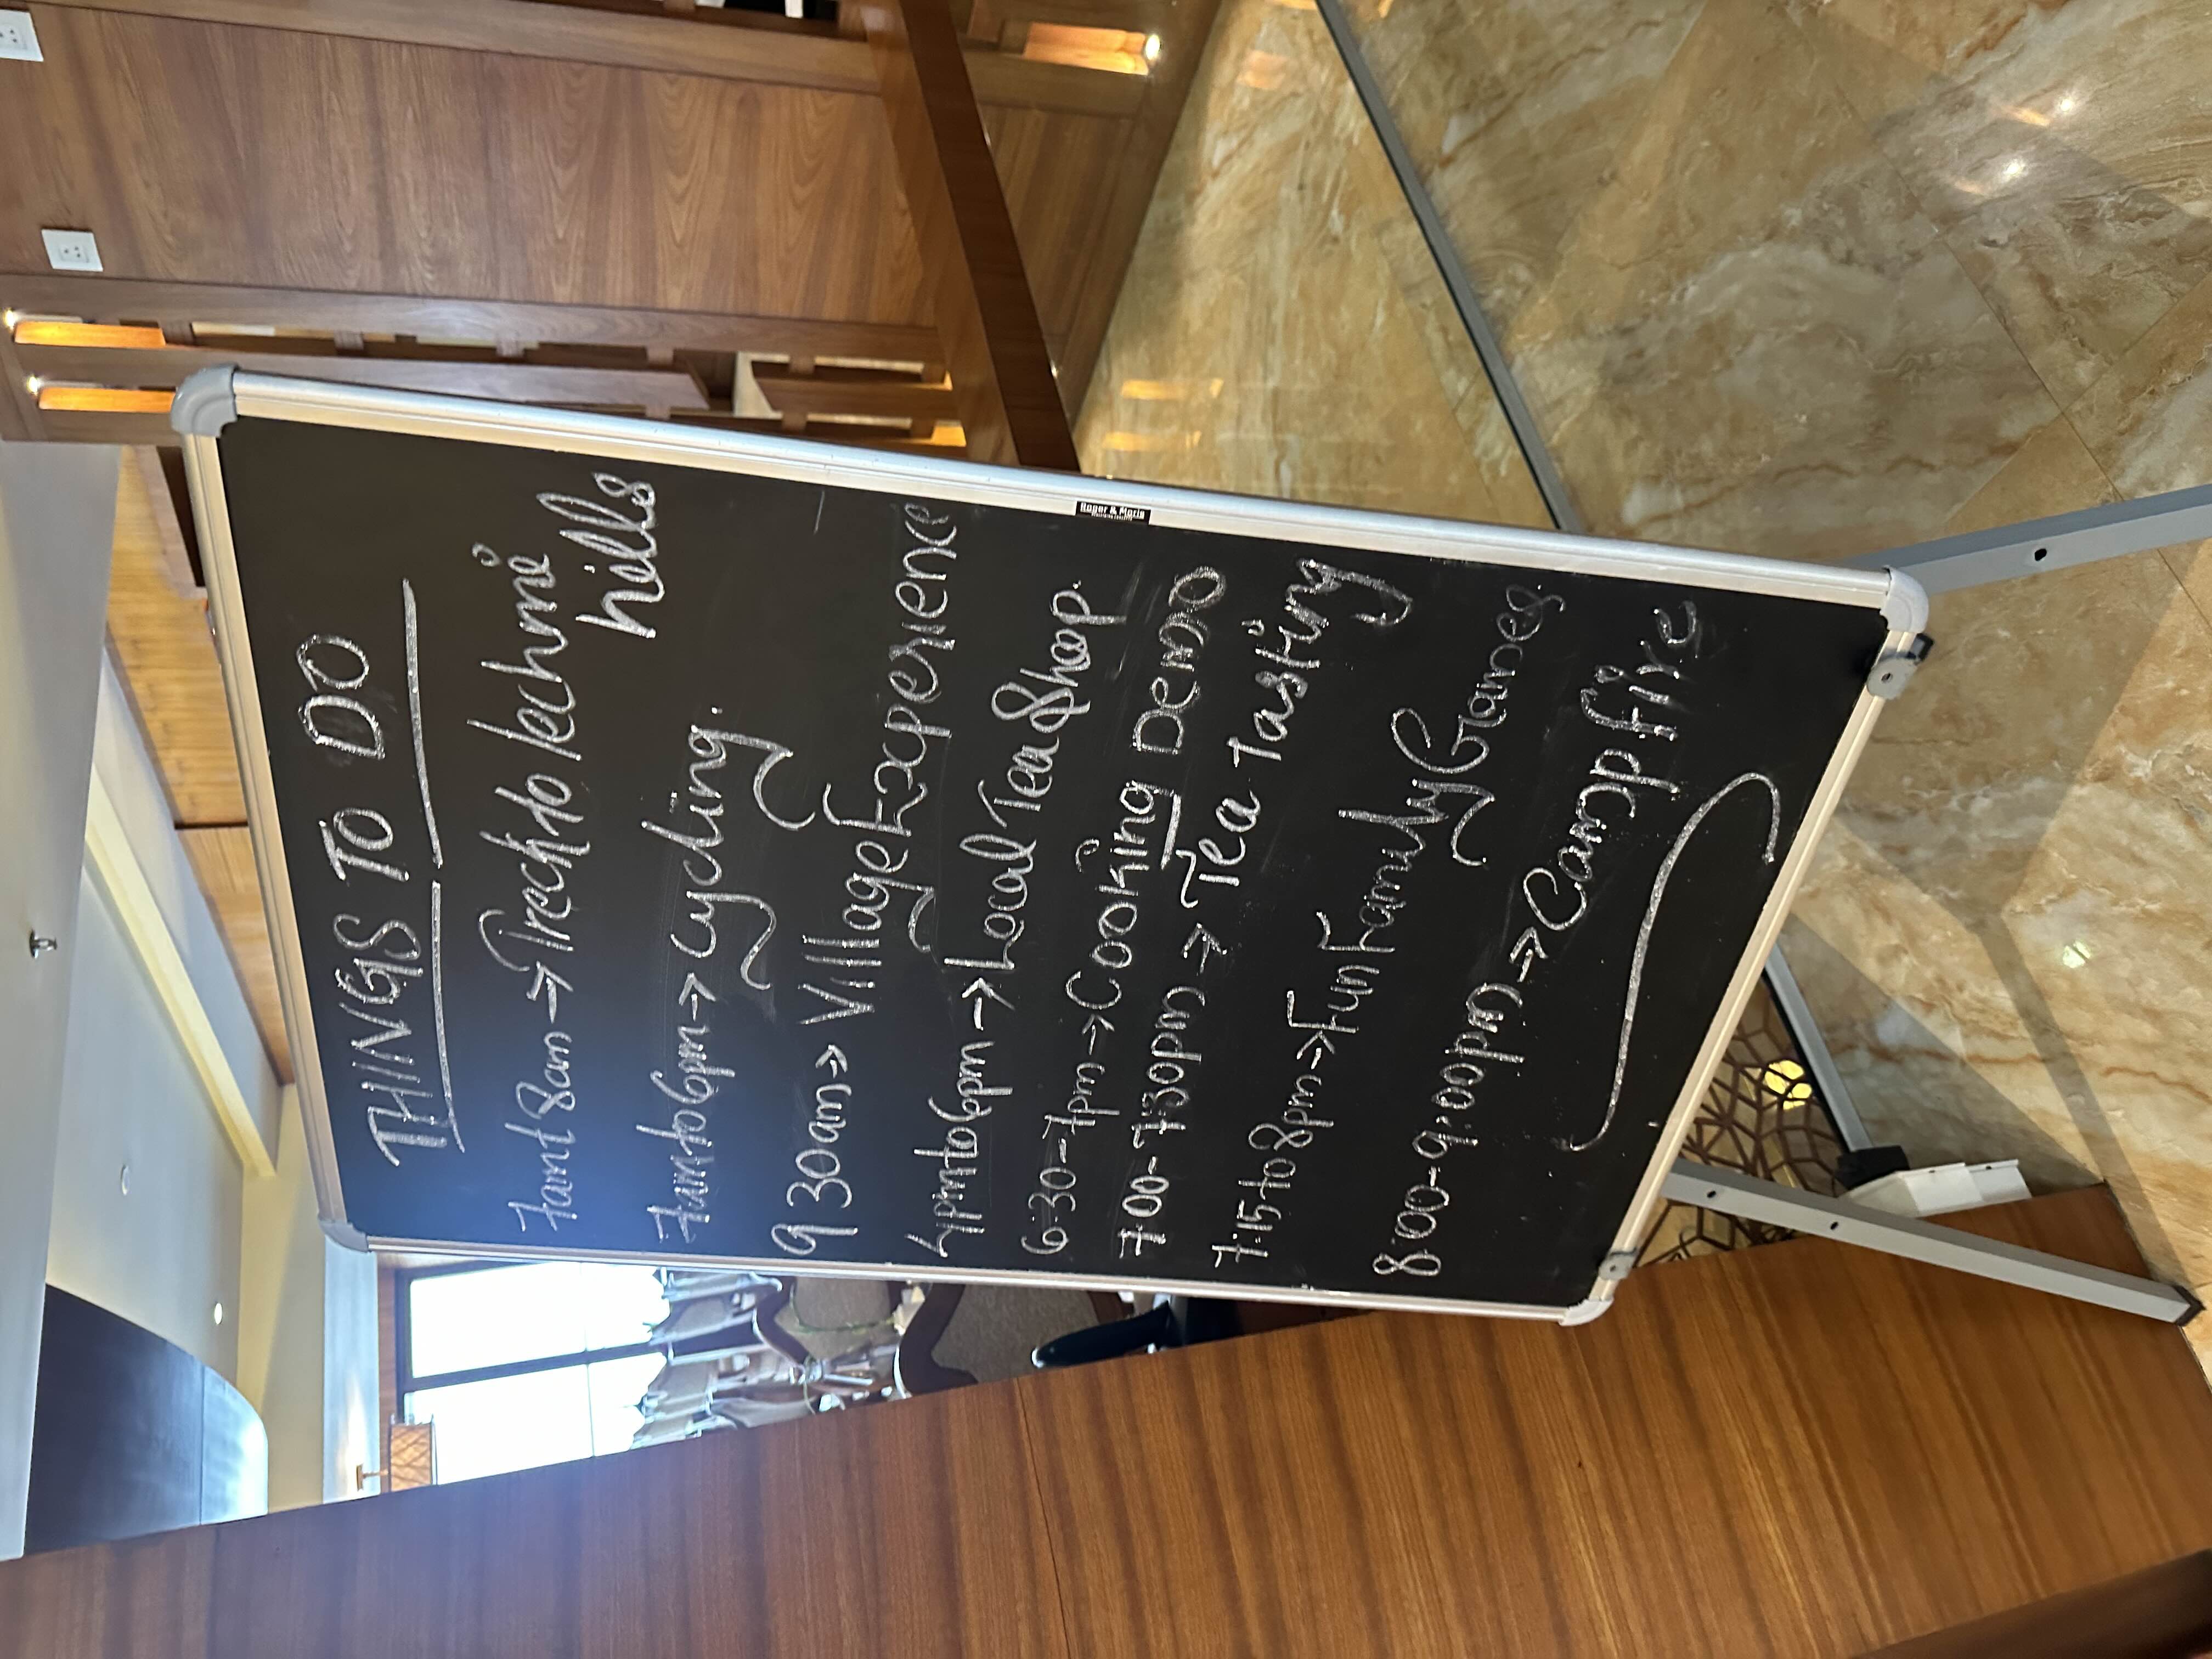 THINGS TO DO
7am t 8am → Treck to lechmi
hills
7am to 6pm → cycling.
9 30am → Village Experience
4pm to 6pm → Local Tea Shop.
6:30-7pm → Cooking Demo
7:00-7:30pm → Tea tasting
7:15 to 8pm → Fun Family Games.
8:00-9:00pm → Camp fire
Roger & Moris